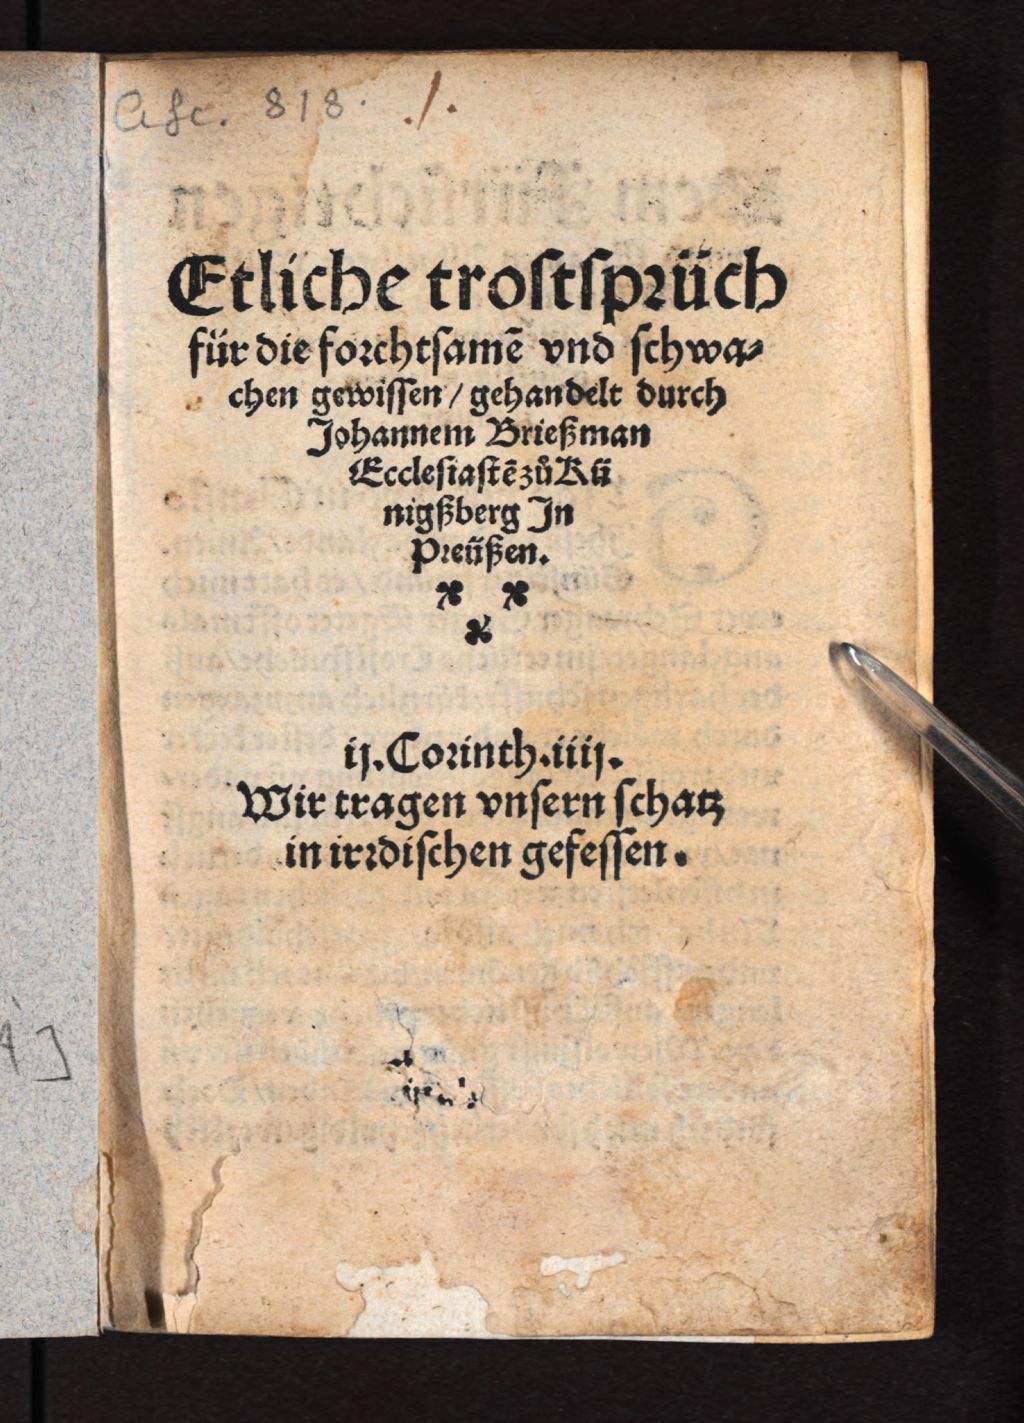 Asc. 818. ./.
Etliche trostsprüch
für die forchtsamē vnd schwa-
chen gewissen / gehandelt durch
Johannem Brießman
Ecclesiastē zů Kü
nigßberg Jn
Preüßen.
ij. Corinth. iiij.
Wir tragen vnsern schatz
in irrdischen gefessen.